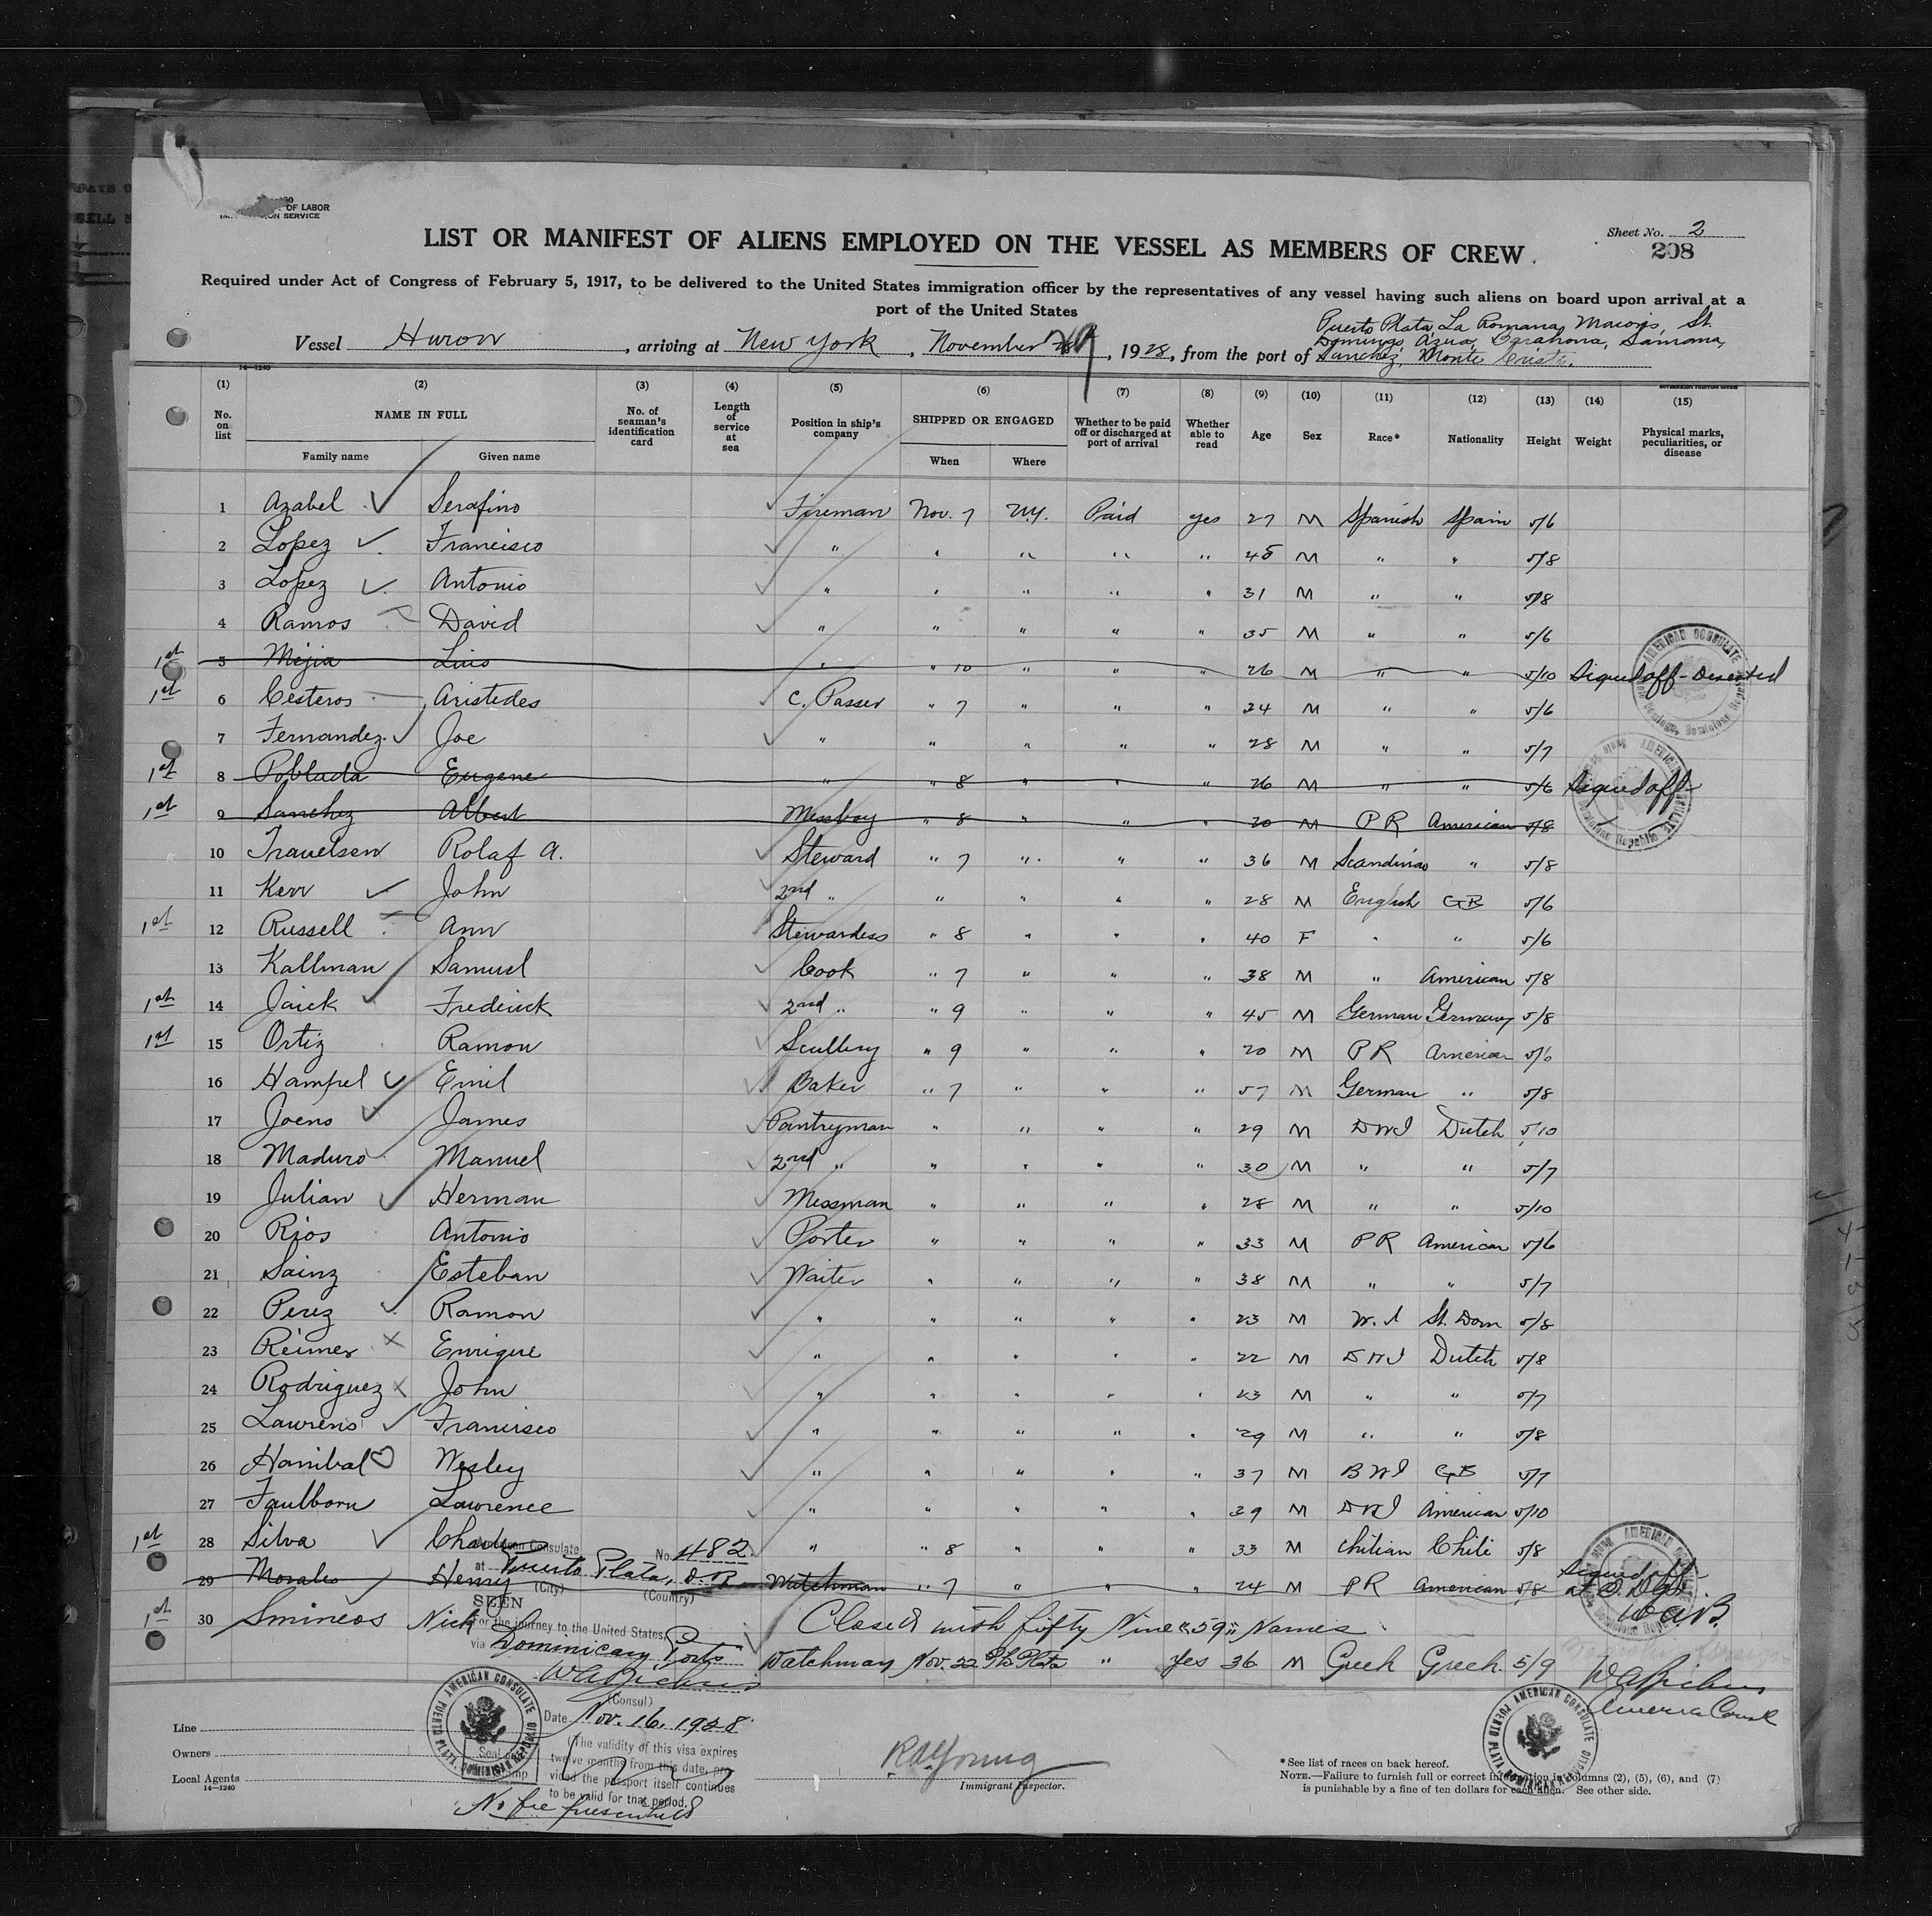 OF LABOR
ON SERVICE
Sheet No. 2
208
LIST OR MANIFEST OF ALIENS EMPLOYED ON THE VESSEL AS MEMBERS OF CREW
Required under Act of Congress of February 5, 1917, to be delivered to the United States immigration officer by the representatives of any vessel having such aliens on board upon arrival at a
port of the United States
Puerto Plata, La Romana, Macoris, St.
Domingo, Azua, Barahona, Samana,
Vessel Huron, arriving at New York, November, 1928, from the port of Sanchez, Monte Cristi.
14—1240
GOVERNMENT PRINTING OFFICE
(1) (2) (3) (4) (5) (6) (7) (8) (9) (10) (11) (12) (13) (14) (15)
No. on list NAME IN FULL No. of seaman's identification card Length of service at sea Position in ship's company SHIPPED OR ENGAGED Whether to be paid off or discharged at port of arrival Whether able to read Age Sex Race* Nationality Height Weight Physical marks, peculiarities, or disease
Family name Given name When Where
1 Azabel Serafino Fireman Nov. 7 N.Y. Paid yes 27 M Spanish Spain 5/6
2 Lopez Francisco " " " " " 45 M " " 5/8
3 Lopez Antonio " " " " " 31 M " " 5/8
4 Ramos David " " " " " 35 M " " 5/6
1st 5 Mejia Luis " " 10 " " " 26 M " " 5/10 Signed off - Deserted
1st 6 Cesteros Aristedes C. Passer " 7 " " " 24 M " " 5/6
7 Fernandez Joe " " " " " 28 M " " 5/7
1st 8 Poblada Eugene " " 8 " " " 26 M " " 5/6 Signed off
1st 9 Sanchez Albert Messboy " 8 " " " 20 M PR American 5/8
10 Trauelsen Rolaf A. Steward " 7 " " " 36 M Scandinav " 5/8
11 Kerr John 2nd " " " " " 28 M English GB 5/6
1st 12 Russell Ann Stewardess " 8 " " " 40 F " " 5/6
13 Kallman Samuel Cook " 7 " " " 38 M " American 5/8
1st 14 Jaick Frederick 2nd " " 9 " " " 45 M German Germany 5/8
1st 15 Ortiz Ramon Scullery " 9 " " " 20 M PR American 5/6
16 Hampel Emil Baker " 7 " " " 57 M German " 5/8
17 Joens James Pantryman " " " " 29 M DWI Dutch 5/10
18 Maduro Manuel 2nd " " " " " 30 M " " 5/7
19 Julian Herman Messman " " " " 28 M " " 5/10
20 Rios Antonio Porter " " " " 33 M PR American 5/6
21 Sainz Esteban Waiter " " " " 38 M " " 5/7
22 Perez Ramon " " " " " 23 M W.I St. Dom 5/8
23 Reimer Enrique " " " " " 22 M DWI Dutch 5/8
24 Rodriguez John " " " " " 23 M " " 5/7
25 Laurens Francisco " " " " " 29 M " " 5/8
26 Hanibal Wesley " " " " " 37 M BWI GB 5/7
27 Faulborn Lawrence " " " " " 39 M DWI American 5/10
1st 28 Silva Charles " " 8 " " " 33 M Chilian Chile 5/8
29 Morales Henry Watchman " 7 " " " 24 M PR American 5/8 Signed off
1st 30 Smineos Nick Closed with fifty Nine "59" Names
Watchman Nov. 22 Pto Plata " Yes 36 M Greek Greek 5/9
American Consulate
No. 482
at Puerto Plata, D.R.
(City) (Country)
SEEN
For the journey to the United States
via Dominican Ports
(Consul)
Date Nov. 16, 1928
The validity of this visa expires
twelve months from this date, pro-
vided the passport itself continues
to be valid for that period.
No fee prescribed
AMERICAN CONSULATE
PUERTO PLATA, DOMINICAN REPUBLIC
Line
Owners
Local Agents
14—1240
R. A. Young
Immigrant Inspector.
American Consul
AMERICAN CONSULATE
PUERTO PLATA, DOMINICAN REPUBLIC
*See list of races on back hereof.
NOTE.—Failure to furnish full or correct information in columns (2), (5), (6), and (7)
is punishable by a fine of ten dollars for each alien. See other side.